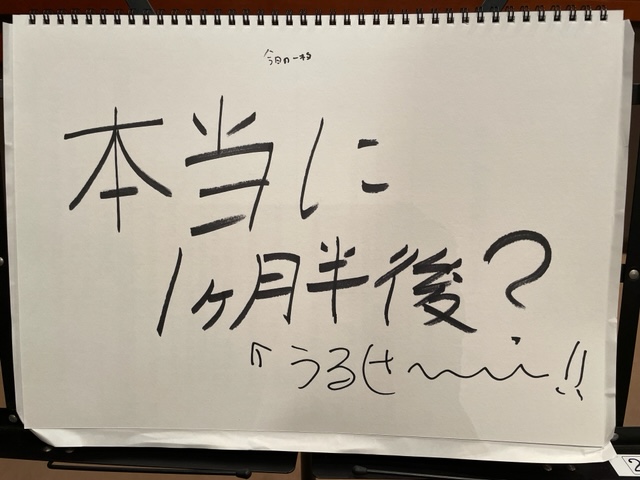 今日の一音
本当に
1ヶ月半後?
↑うるせ〜〜〜!!
2